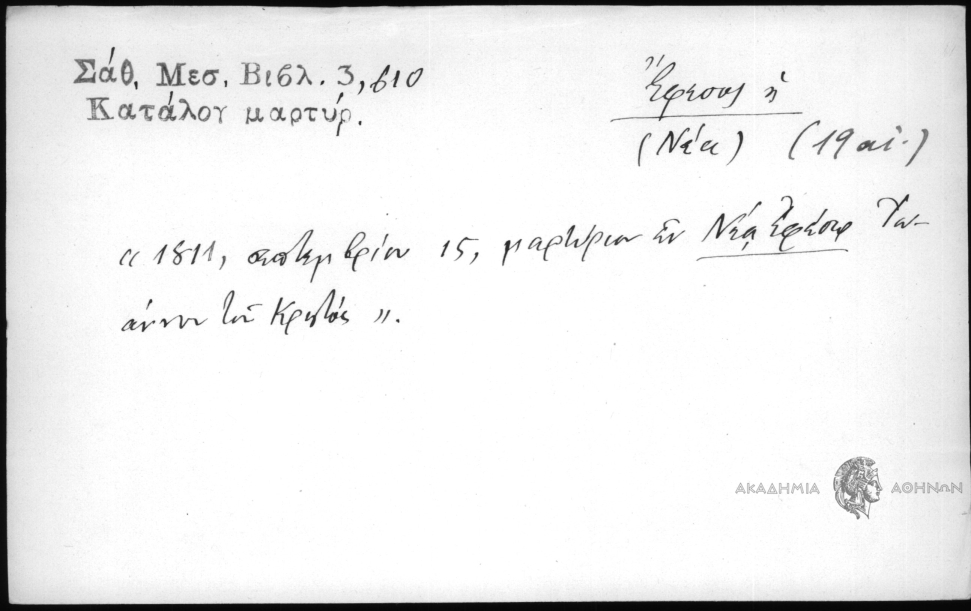 Σάθ, Μεσ, Βιβλ. 3, 610
Καταλόγ μαρτύρ.
Ἔφεσος ἡ
(Νέα) (19 αἰ.)
« 1811, σεπτεμβρίου 15, μαρτύριον ἐν Νέᾳ Ἐφέσῳ Ἰω-
άννου τοῦ Κρητός ».
ΑΚΑΔΗΜΙΑ ΑΘΗΝΩΝ